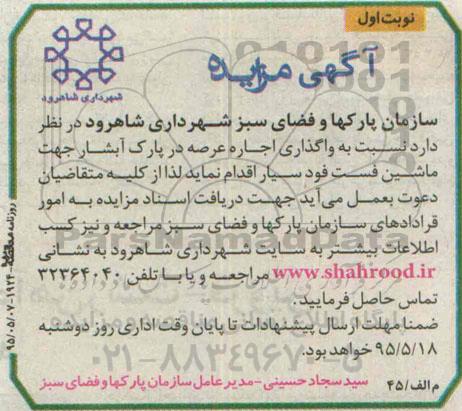 نوبت اول
آگهی مزایده
شهرداری شاهرود
سازمان پارکها و فضای سبز شهرداری شاهرود در نظر
دارد نسبت به واگذاری اجاره عرصه در پارک آبشار جهت
ماشین فست فود سیار اقدام نماید لذا از کلیه متقاضیان
دعوت بعمل می آید جهت دریافت اسناد مزایده به امور
قرادادهای سازمان پارکها و فضای سبز مراجعه و نیز کسب
اطلاعات بیشتر به سایت شهرداری شاهرود به نشانی
www.shahrood.ir مراجعه و یا با تلفن ۳۲۳۶۴۰۴۰
تماس حاصل فرمایید.
ضمنا مهلت ارسال پیشنهادات تا پایان وقت اداری روز دوشنبه
۹۵/۵/۱۸ خواهد بود.
۰۲۱-۸۸۳۴۹۶۷۰-۵
سید سجاد حسینی - مدیر عامل سازمان پارکها و فضای سبز
م الف/۴۵
ParsNamadData